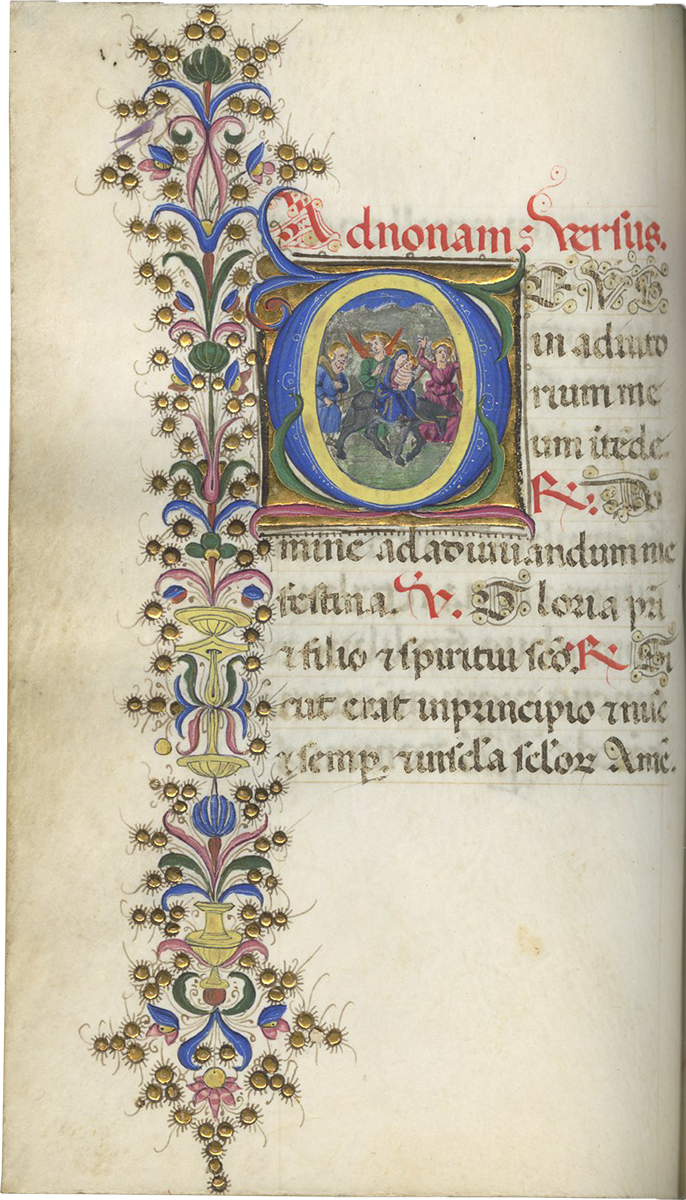 Ad nonam: Versus.
DEVS
in adiuto
rium me
um itēde.
R. Do
mine ad adiuuandum me
festina. V. Gloria pri
⁊ filio ⁊ spiritui scō. R Si
cut erat in principio ⁊ nūc
⁊ semp. ⁊ in scla sclor Amē.